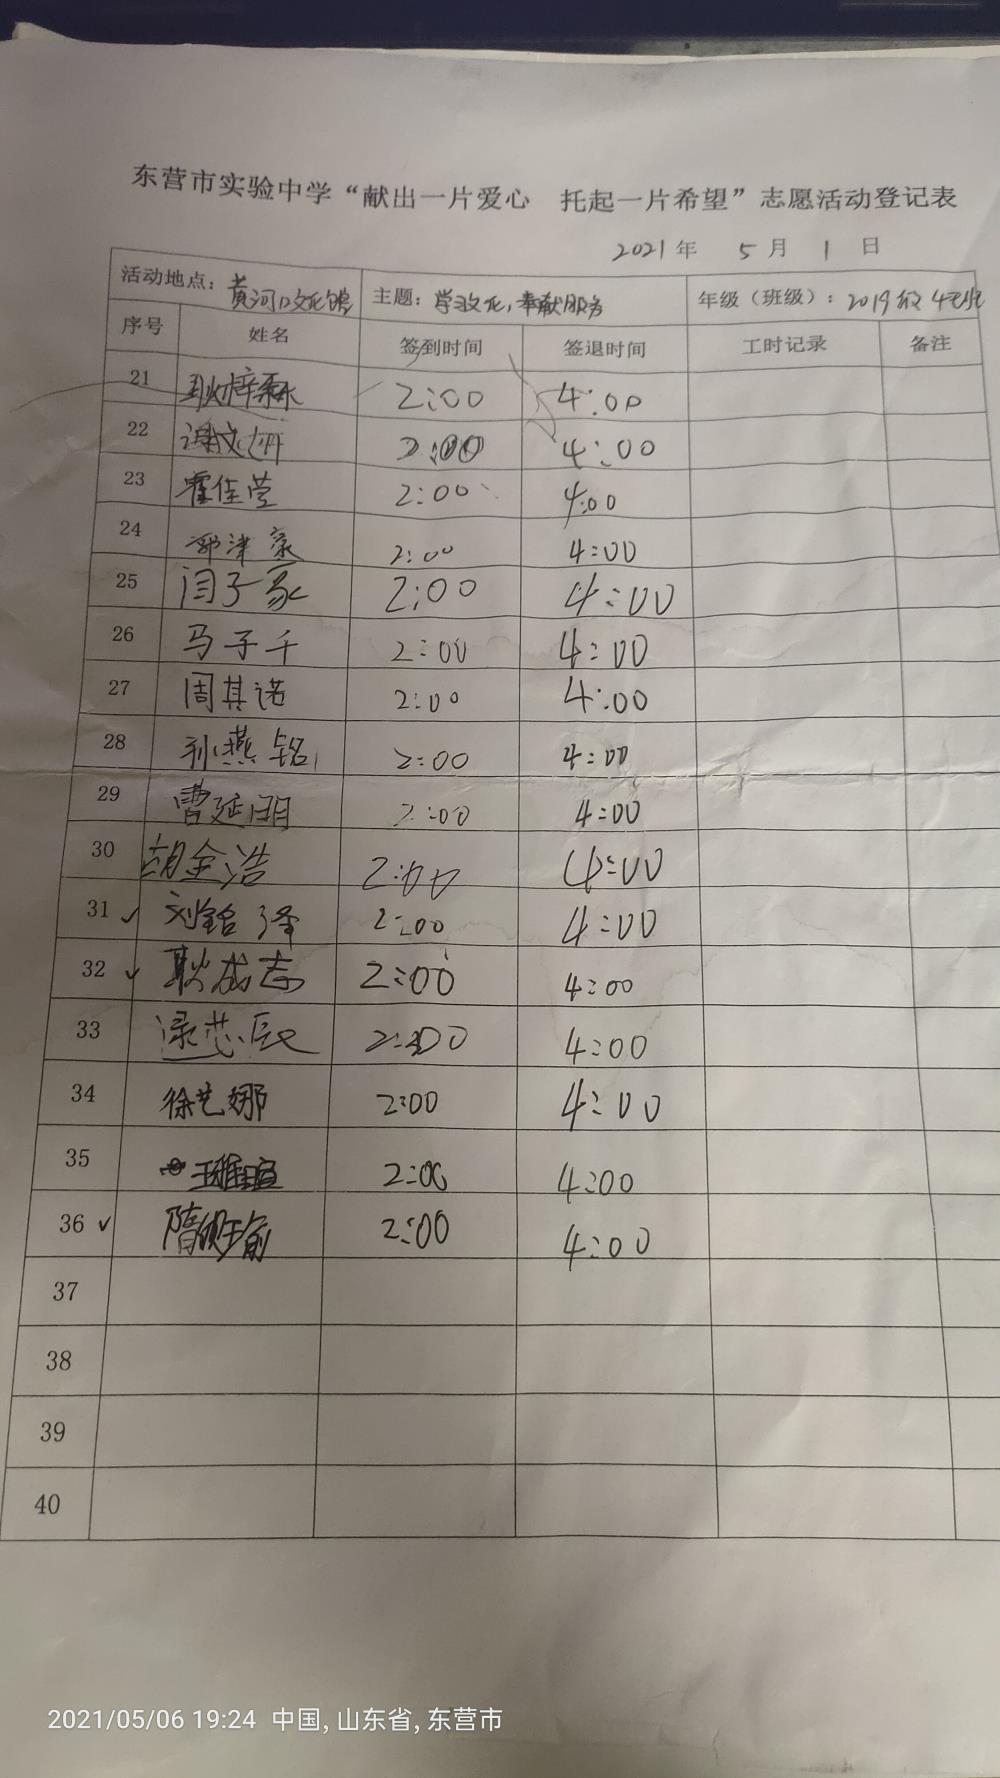 东营市实验中学“献出一片爱心 托起一片希望”志愿活动登记表
2021年 5月 1日
活动地点：黄河口文化馆 主题：学习文化，奉献服务 年级（班级）：2019级4班
序号 姓名 签到时间 签退时间 工时记录 备注
21 耿梓霖 2:00 4:00
22 谭文妍 2:00 4:00
23 霍佳莹 2:00 4:00
24 郭津豪 2:00 4:00
25 闫子豪 2:00 4:00
26 马子千 2:00 4:00
27 周其诺 2:00 4:00
28 孙燕铭 2:00 4:00
29 曹延明 2:00 4:00
30 胡金浩 2:00 4:00
31 ✓ 刘铭泽 2:00 4:00
32 ✓ 耿成志 2:00 4:00
33 梁芯辰 2:00 4:00
34 徐艺娜 2:00 4:00
35 王雅瑄 2:00 4:00
36 ✓ 隋 2:00 4:00
37
38
39
40
2021/05/06 19:24 中国,山东省,东营市